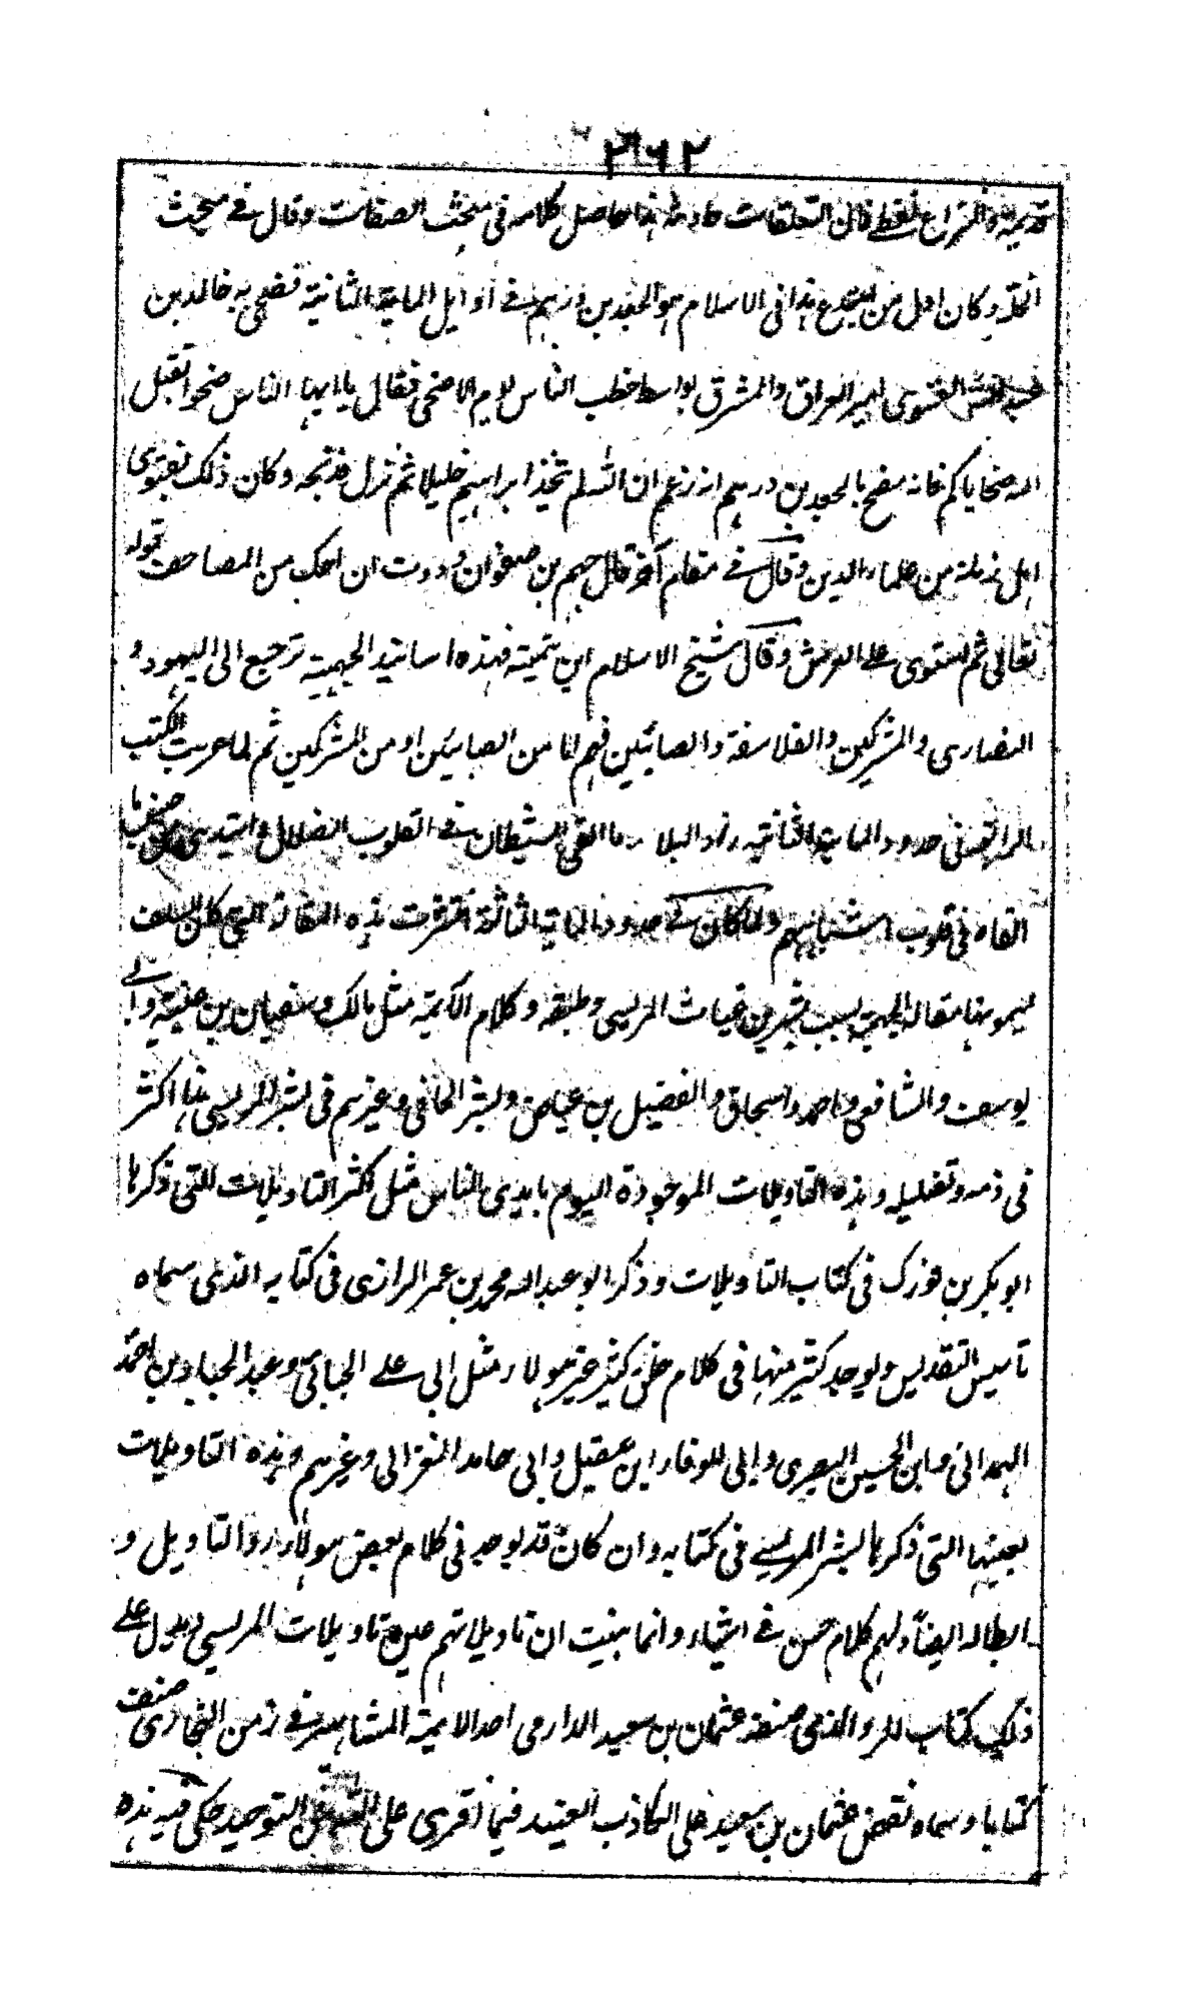 ٣٦٢
قديمة والنزاع لفظي فان التعلقات حادثة هذا حاصل كلامه في مبحث الصفات وقال في مبحث
وكان اول من ابتدع هذا في الاسلام هو الجعد بن درهم في اوايل الماية الثانية فضحى به خالد بن
عبد الله القسرى امير العراق والمشرق بواسط خطب الناس يوم الاضحى فقال يا ايها الناس ضحوا تقبل
الله ضحاياكم فانه مضح بالجعد بن درهم انه زعم ان الله لم يتخذ ابراهيم خليلا ثم نزل فذبحه وكان ذلك بفتوى
اهل زمانه من علماء الدين وقال في مقام آخر قال جهم بن صفوان وددت ان احك من المصاحف قوله
تعالى ثم استوى على العرش وقال شيخ الاسلام ابن تيمية فهذه اسانيد الجهمية ترجع الى اليهود و
النصارى والمشركين والفلاسفة والصائبين فهم اما من الصابئين او من المشركين ثم لما عربت الكتب
الرومية في حدود الماية الثانية زاد البلاء مع ما القى الشيطان في القلوب الضلال ابتداء من جنس ما
القاه في قلوب اشباههم ولما كان في حدود الماية الثالثة انتشرت هذه المقالة التي كان السلف
يسمونها مقالة الجهمية بسبب بشر بن غياث المريسى وطبقته وكلام الائمة مثل مالك وسفيان بن عيينة وابى
يوسف والشافعى واحمد واسحاق والفضيل بن عياض وبشر الحافى وغيرهم في بشر المريسى هذا اكثر
في ذمه وتضليله وهذه التاويلات الموجودة اليوم بايدى الناس مثل اكثر التاويلات التي ذكرها
ابو بكر بن فورك في كتاب التاويلات وذكر ابو عبد الله محمد بن عمر الرازى في كتابه الذى سماه
تاسيس التقديس ويوجد كثير منها في كلام خلق كثير غير هؤلاء مثل ابى على الجبائى وعبد الجبار بن احمد
الهمدانى وابن الحسين البصرى وابى الوفاء ابن عقيل وابى حامد الغزالى وغيرهم وهذه التاويلات
بعينها التي ذكرها بشر المريسى في كتابه وان كان قد يوجد في كلام بعض هؤلاء رد التاويل و
ابطاله ايضا ولهم كلام حسن في اشياء وانما بينت ان تاويلاتهم عين تاويلات المريسى ويدل على
ذلك كتاب الرد الذى صنفه عثمان بن سعيد الدارمى احد الايمة المشاهير في زمن البخارى صنف
كتابا وسماه نقض عثمان بن سعيد على الكاذب العنيد فيما افترى على الله في التوحيد حكى فيه هذه